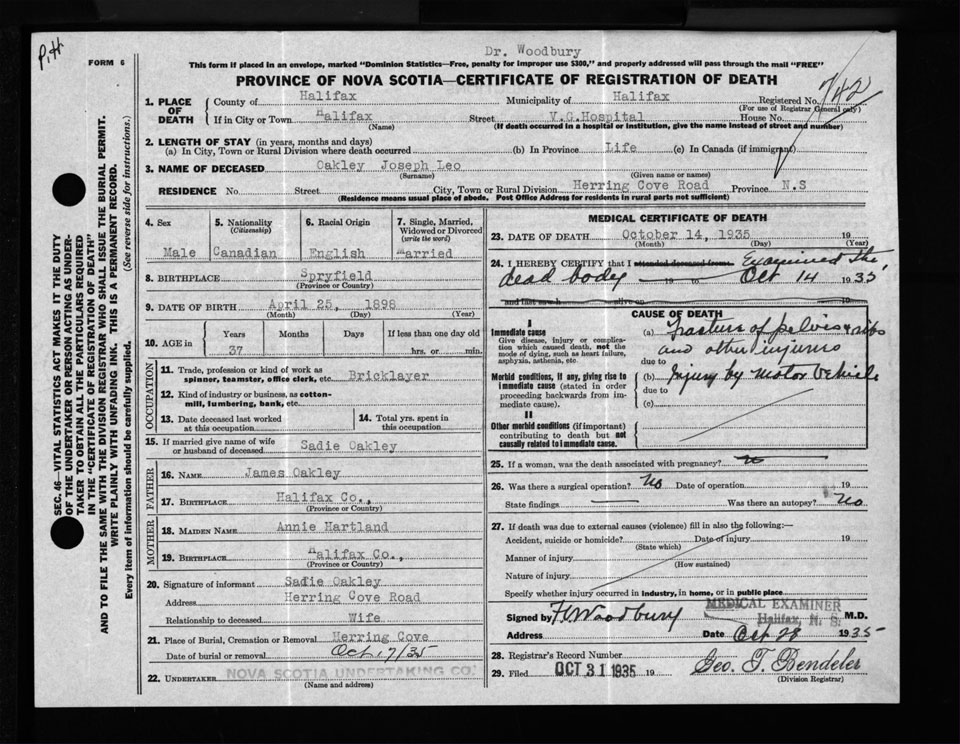 P.H
FORM 6
Dr. Woodbury
This form if placed in an envelope, marked "Dominion Statistics—Free, penalty for improper use $300," and properly addressed will pass through the mail "FREE"
PROVINCE OF NOVA SCOTIA—CERTIFICATE OF REGISTRATION OF DEATH
1. PLACE OF DEATH
County of Halifax Municipality of Halifax Registered No. 742
(For use of Registrar General only)
If in City or Town Halifax Street V.G.Hospital House No.
(Name) (If death occurred in a hospital or institution, give the name instead of street and number)
2. LENGTH OF STAY (in years, months and days)
(a) In City, Town or Rural Division where death occurred (b) In Province Life (c) In Canada (if immigrant)
3. NAME OF DECEASED Oakley Joseph Leo
(Surname) (Given name or names)
RESIDENCE No. Street City, Town or Rural Division Herring Cove Road Province N.S
(Residence means usual place of abode. Post Office Address for residents in rural parts not sufficient)
4. Sex
Male
5. Nationality
(Citizenship)
Canadian
6. Racial Origin
English
7. Single, Married, Widowed or Divorced
(write the word)
Married
8. BIRTHPLACE Spryfield
(Province or Country)
9. DATE OF BIRTH April 25, 1898
(Month) (Day) (Year)
10. AGE in
Years Months Days If less than one day old
37 hrs. or min.
OCCUPATION
11. Trade, profession or kind of work as
spinner, teamster, office clerk, etc. Bricklayer
12. Kind of industry or business, as cotton-
mill, lumbering, bank, etc.
13. Date deceased last worked
at this occupation
14. Total yrs. spent in
this occupation
15. If married give name of wife
or husband of deceased Sadie Oakley
FATHER
16. NAME James Oakley
17. BIRTHPLACE Halifax Co.,
(Province or Country)
MOTHER
18. MAIDEN NAME Annie Hartland
19. BIRTHPLACE Halifax Co.,
(Province or Country)
20. Signature of informant Sadie Oakley
Address Herring Cove Road
Relationship to deceased Wife
21. Place of Burial, Cremation or Removal Herring Cove
Date of burial or removal Oct. 17/35
22. UNDERTAKER NOVA SCOTIA UNDERTAKING CO.
(Name and address)
MEDICAL CERTIFICATE OF DEATH
23. DATE OF DEATH October 14, 1935 19
(Month) (Day) (Year)
24. I HEREBY CERTIFY that I attended deceased from Examined the
dead body 19 to Oct 14 1935
and last saw h alive on 19
CAUSE OF DEATH
I
Immediate cause
Give disease, injury or complica-
tion which caused death, not the
mode of dying, such as heart failure,
asphyxia, asthenia, etc.
(a) Fracture of pelvis & ribs
and other injuries
due to
Morbid conditions, if any, giving rise to
immediate cause (stated in order
proceeding backwards from im-
mediate cause).
(b) Injury by Motor Vehicle
due to
(c)
II
Other morbid conditions (if important)
contributing to death but not
causally related to immediate cause.
25. If a woman, was the death associated with pregnancy?
26. Was there a surgical operation? No Date of operation 19
State findings Was there an autopsy? No
27. If death was due to external causes (violence) fill in also the following:—
Accident, suicide or homicide? Date of injury 19
(State which)
Manner of injury
(How sustained)
Nature of injury
Specify whether injury occurred in industry, in home, or in public place
MEDICAL EXAMINER
Halifax, N. S.
Signed by Woodbury M.D.
Address Date Oct 28 1935
28. Registrar's Record Number
29. Filed OCT 31 1935 19 Geo. T. Bendeler
(Division Registrar)
SEC. 46—VITAL STATISTICS ACT MAKES IT THE DUTY
OF THE UNDERTAKER OR PERSON ACTING AS UNDER-
TAKER TO OBTAIN ALL THE PARTICULARS REQUIRED
IN THE "CERTIFICATE OF REGISTRATION OF DEATH"
AND TO FILE THE SAME WITH THE DIVISION REGISTRAR WHO SHALL ISSUE THE BURIAL PERMIT.
WRITE PLAINLY WITH UNFADING INK. THIS IS A PERMANENT RECORD.
Every item of information should be carefully supplied. (See reverse side for instructions.)